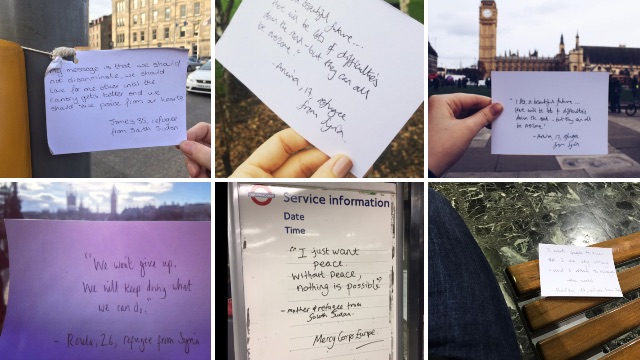 My message is that we should
not discriminate. we should
love for one other until the
country gets better and we
should raise praise from our hearts
James, 35, refugee
from South Sudan
a beautiful future...
there will be lots of difficulties
down the road - but they can all
be resolve."
- Amina, 17, refugee
from Syria.
"I see a beautiful future...
there will be lots of difficulties
down the road - but they can all
be resolve."
- Amina, 17, refugee
from Syria
"We wont give up.
We will keep doing what
we can do."
- Roula, 26, refugee from Syria
Service information
Date
Time
"I just want
peace.
without peace,
nothing is possible"
- mother & refugee from
South Sudan.
Mercy Corps Europe